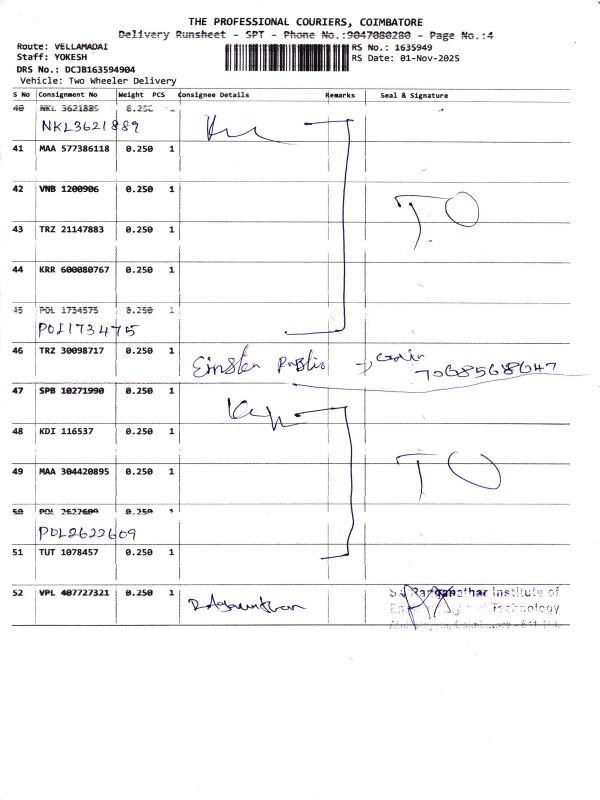 THE PROFESSIONAL COURIERS, COIMBATORE
Delivery Runsheet - SPT - Phone No.:9047080280 - Page No.:4
Route: VELLAMADAI
Staff: YOKESH
DRS No.: DCJB163594904
Vehicle: Two Wheeler Delivery
RS No.: 1635949
RS Date: 01-Nov-2025
S No Consignment No Weight PCS Consignee Details Remarks Seal & Signature
40 NKL 3621889 0.250
NKL3621889
41 MAA 577386118 0.250 1
42 VNB 1200906 0.250 1
TO
43 TRZ 21147883 0.250 1
44 KRR 600080767 0.250 1
45 POL 1734575 0.250 1
POL173475
46 TRZ 30098717 0.250 1
47 SPB 10271990 0.250 1
48 KDI 116537 0.250 1
49 MAA 304420895 0.250 1
TO
50 POL 2622609 0.250 1
POL2622609
51 TUT 1078457 0.250 1
52 VPL 407727321 0.250 1
Ranganathar Institute of
Technology